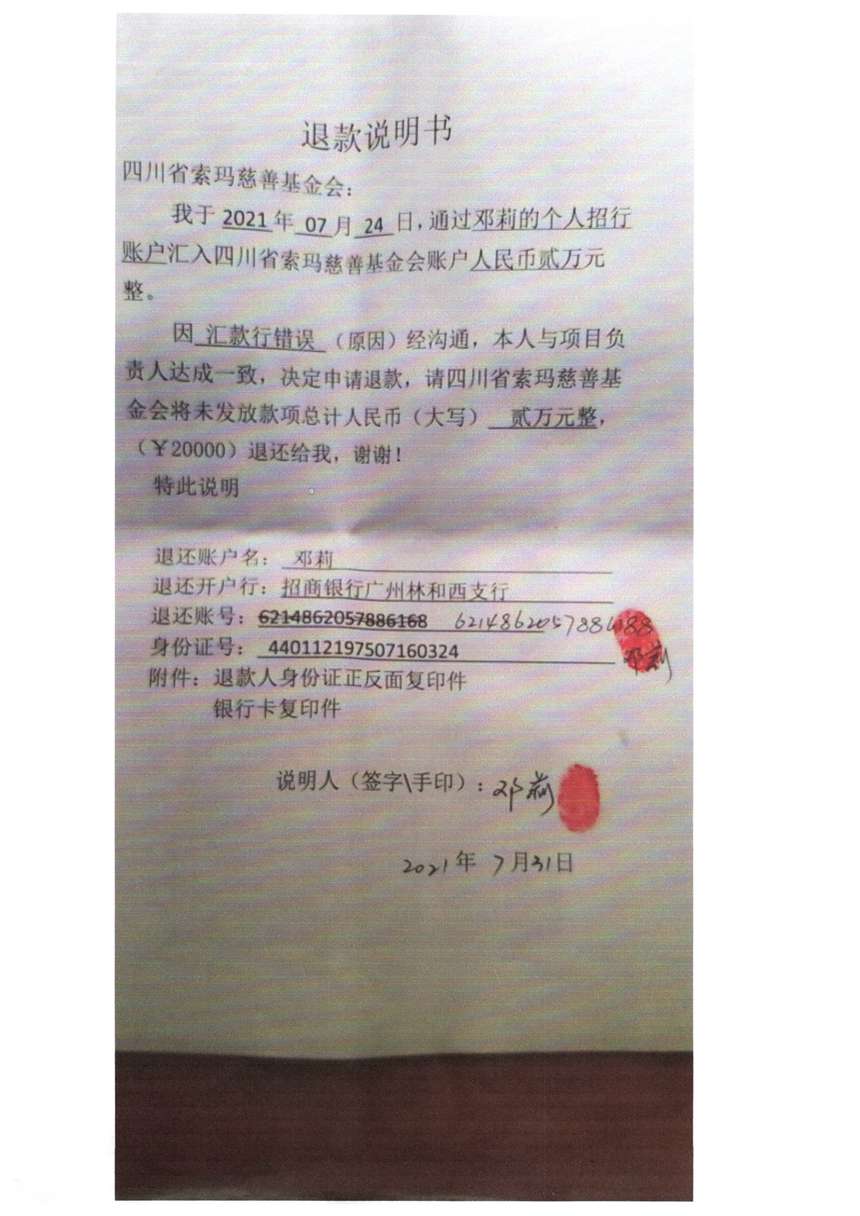 退款说明书
四川省索玛慈善基金会：
我于 2021 年 07 月 24 日，通过邓莉的个人招行
账户汇入四川省索玛慈善基金会账户人民币贰万元
整。
因 汇款行错误 （原因）经沟通，本人与项目负
责人达成一致，决定申请退款，请四川省索玛慈善基
金会将未发放款项总计人民币（大写） 贰万元整，
（￥20000）退还给我，谢谢！
特此说明
退还账户名： 邓莉
退还开户行：招商银行广州林和西支行
退还账号：6214862057886168
身份证号： 440112197507160324
邓莉
附件：退款人身份证正反面复印件
银行卡复印件
说明人（签字\手印）：邓莉
2021年 7月31日